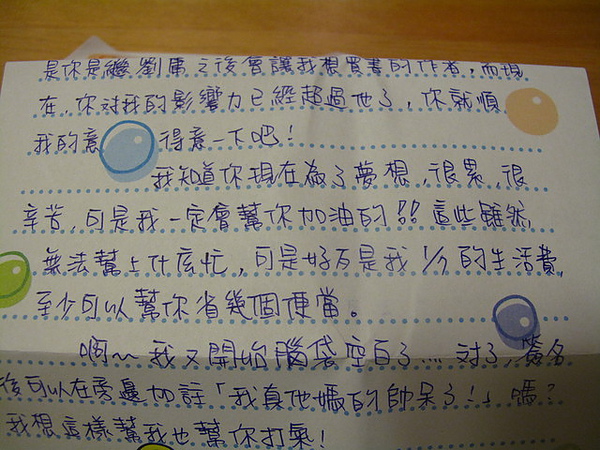 是你是繼劉墉之後會讓我想買書的作者,而現
在,你對我的影響力已經超過他了,你就順
我的意 得意一下吧!
我知道你現在為了夢想,很累,很
辛苦,可是我一定會幫你加油的!!這些雖然
無法幫上什麼忙,可是好歹是我1/7的生活費,
至少可以幫你省幾個便當。
啊~我又開始腦袋空白了....對了,簽名
後可以在旁邊加註「我真他媽的帥呆了!」嗎?
我想這樣幫我也幫你打氣!